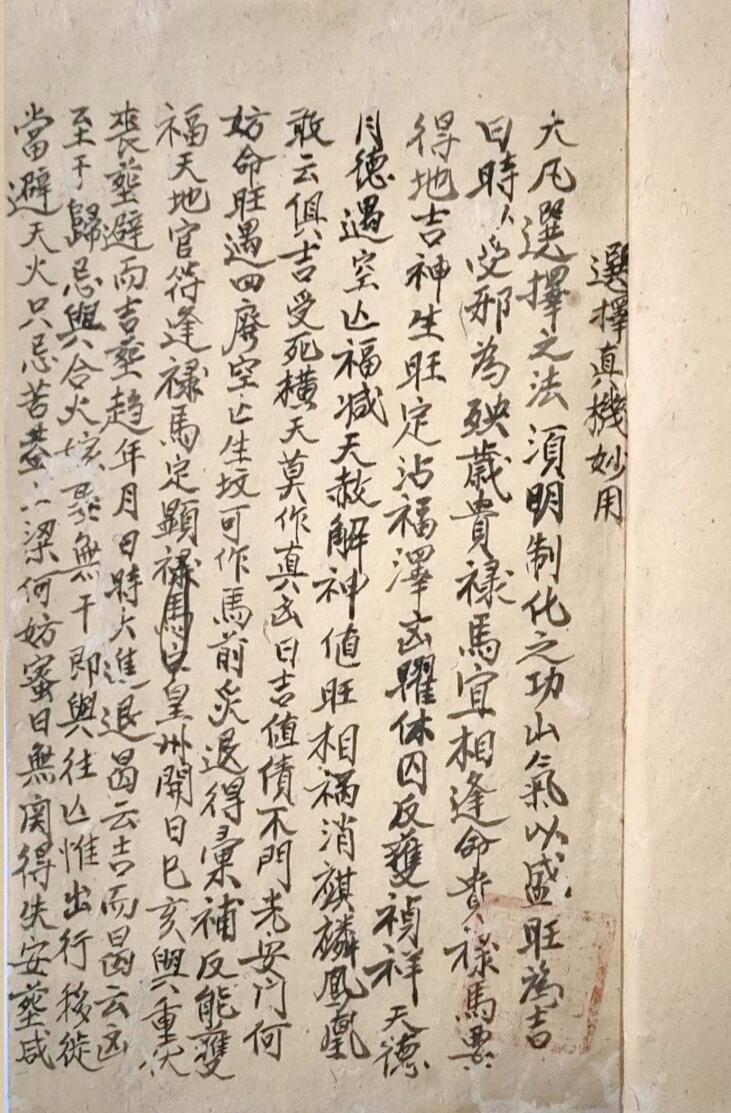 選擇真機妙用
大凡選擇之法須明制化之功山氣以盛旺為吉
日時受邪為殃歲貴祿馬宜相逢命貴祿馬要
得地吉神生旺定沾福澤凶曜休囚反獲禎祥天德
月德遇空亡福减天赦解神值旺相禍消麒麟鳳凰
敢云俱吉受死橫天莫作真凶日吉值債不門光安门何
妨命旺遇四廢空亡生坟可作馬前炎退得彙補反能獲
福天地官符逢祿馬定顯祿馬皇州開日巳亥與重伏
喪塟避而吉塟趋年月日時大進退曷云吉而曷云凶
至于歸忌與合火無干即與往亡惟出行移徙
當避天火只忌苦盖上梁何妨蜜日無関得失安塟咸